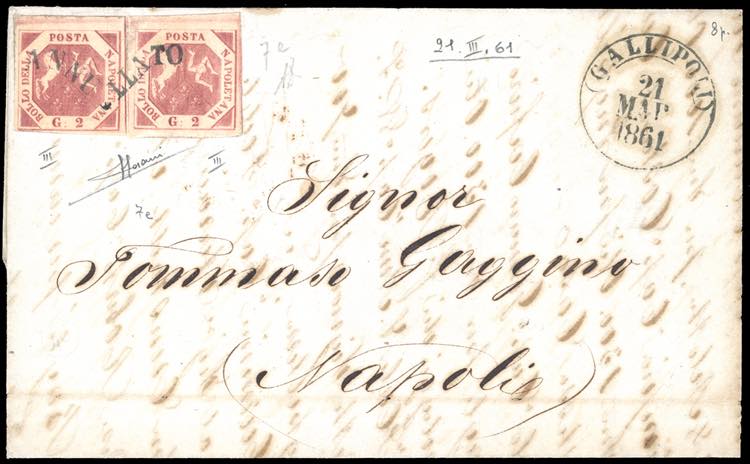 POSTA
BOLLO DELLA
NAPOLETANA
G. 2
POSTA
BOLLO DELLA
NAPOLETANA
G. 2
ANNULLATO
7e
21. III. 61
8p.
GALLIPOLI
21
MAR
1861
III
III
7e
Signor
Tommaso Gaggino
Napoli